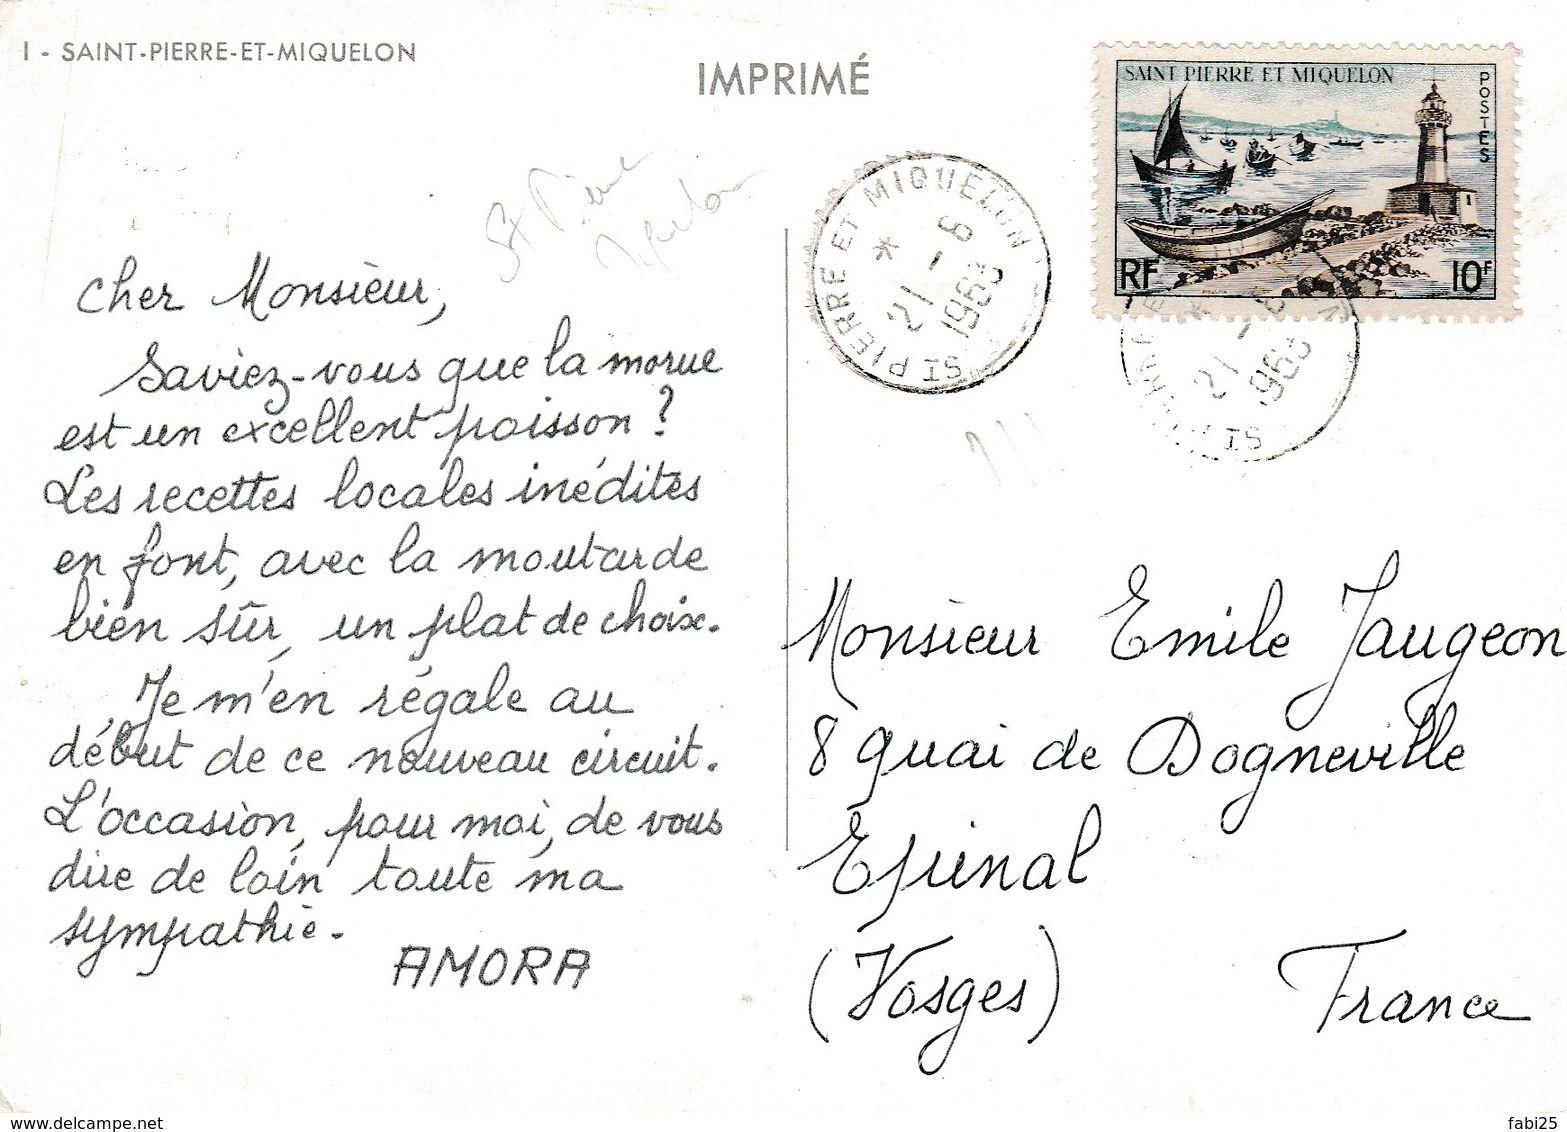 I - SAINT-PIERRE-ET-MIQUELON
IMPRIMÉ
SAINT PIERRE ET MIQUELON
POSTES
RF
10F
ST PIERRE ET MIQUELON
*
21-6
1963
21-6
St Pierre
Cher Monsieur,
Saviez-vous que la morue
est un excellent poisson ?
Les recettes locales inédites
en font, avec la moutarde
bien sûr, un plat de choix.
Je m'en régale au
début de ce nouveau circuit.
L'occasion, pour moi, de vous
dire de loin toute ma
sympathie.
AMORA
Monsieur Emile Jaugeon
8 quai de Dogneville
Epinal
(Vosges) France
www.delcampe.net
fabi25